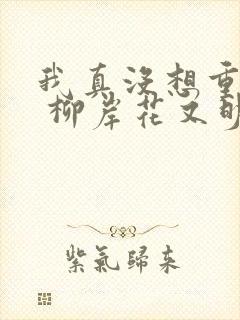 我真没想重
柳岸花又明
紫氣歸來